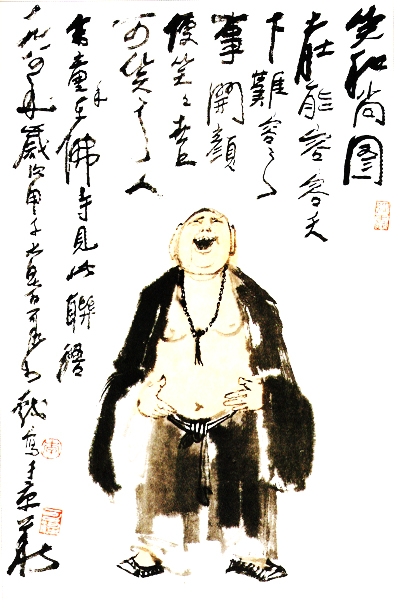 笑和尚图
大肚能容容天
下難容之
事開顏
便笑笑世
可笑之人
童年佛寺見此聯語
一九八四年歲次甲子